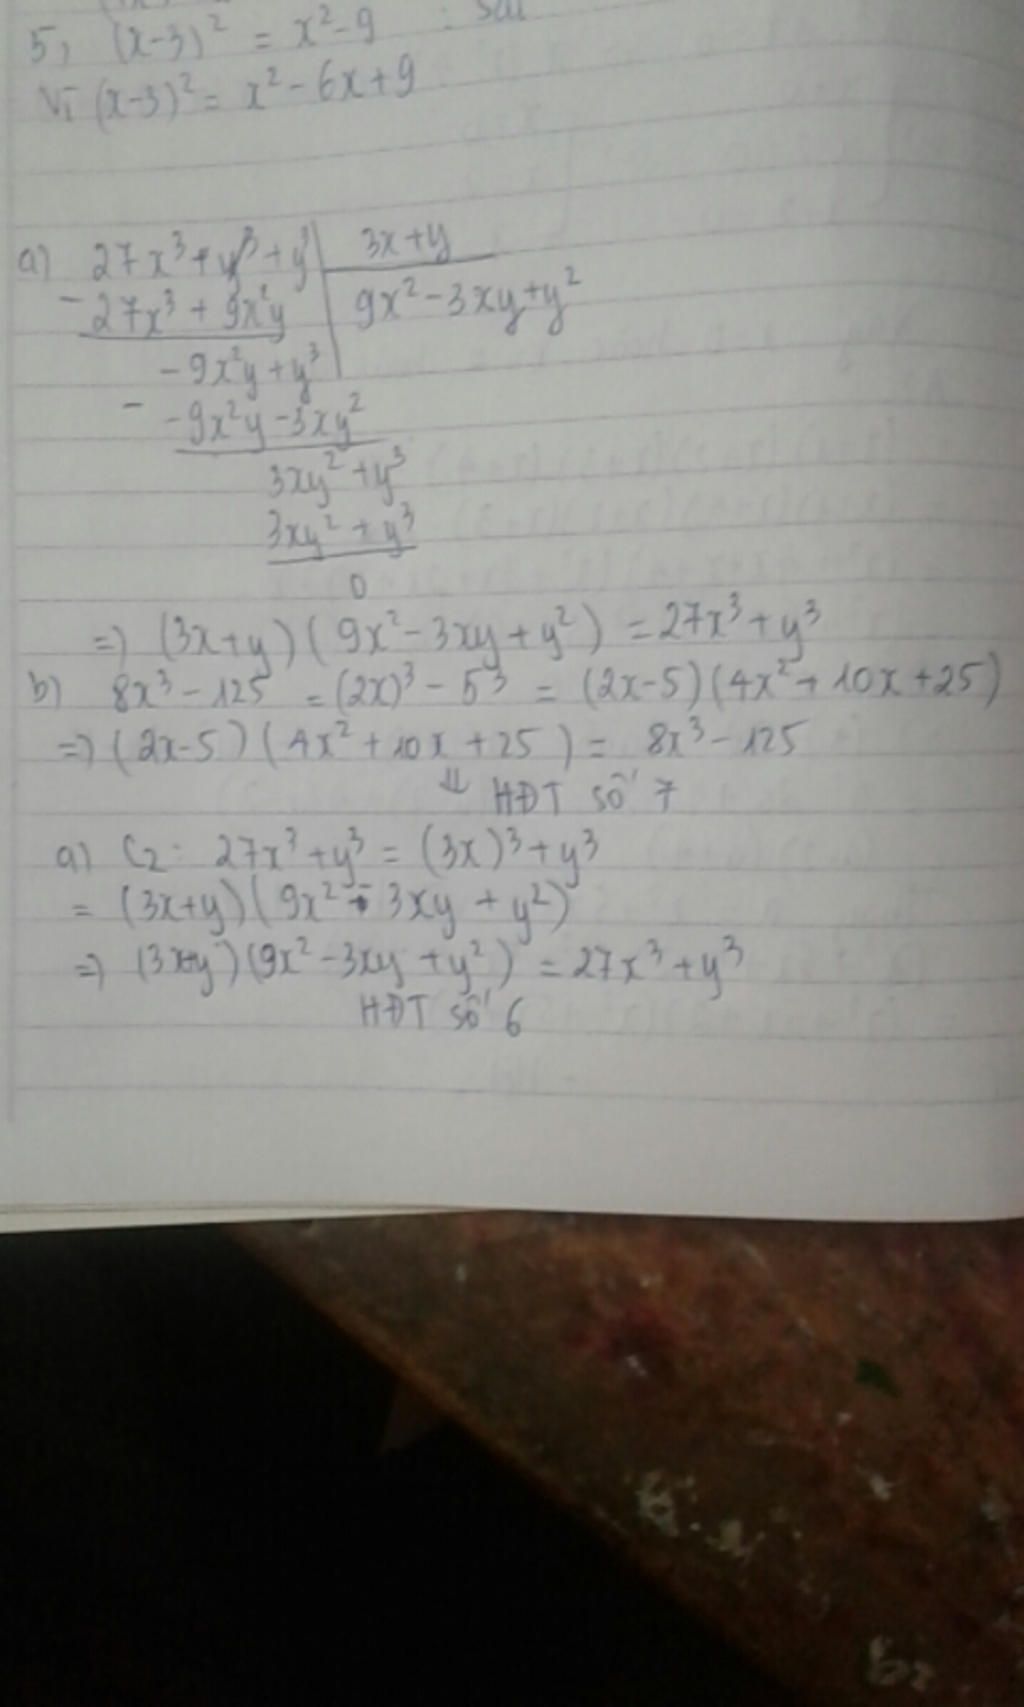 5, (x-3)² = x²-9 : sai
Vì (x-3)² = x² - 6x + 9
a) 27x³ + y³ + y³ | 3x+y
- 27x³ + 9x²y | 9x² - 3xy + y²
- 9x²y + y³
- -9x²y - 3xy²
3xy² + y³
3xy² + y³
0
=> (3x+y)(9x² - 3xy + y²) = 27x³ + y³
b) 8x³ - 125 = (2x)³ - 5³ = (2x-5)(4x² + 10x + 25)
=> (2x-5)(4x² + 10x + 25) = 8x³ - 125
⇓ HĐT số 7
a) C2: 27x³ + y³ = (3x)³ + y³
= (3x+y)(9x² - 3xy + y²)
=> (3x+y)(9x² - 3xy + y²) = 27x³ + y³
HĐT số 6